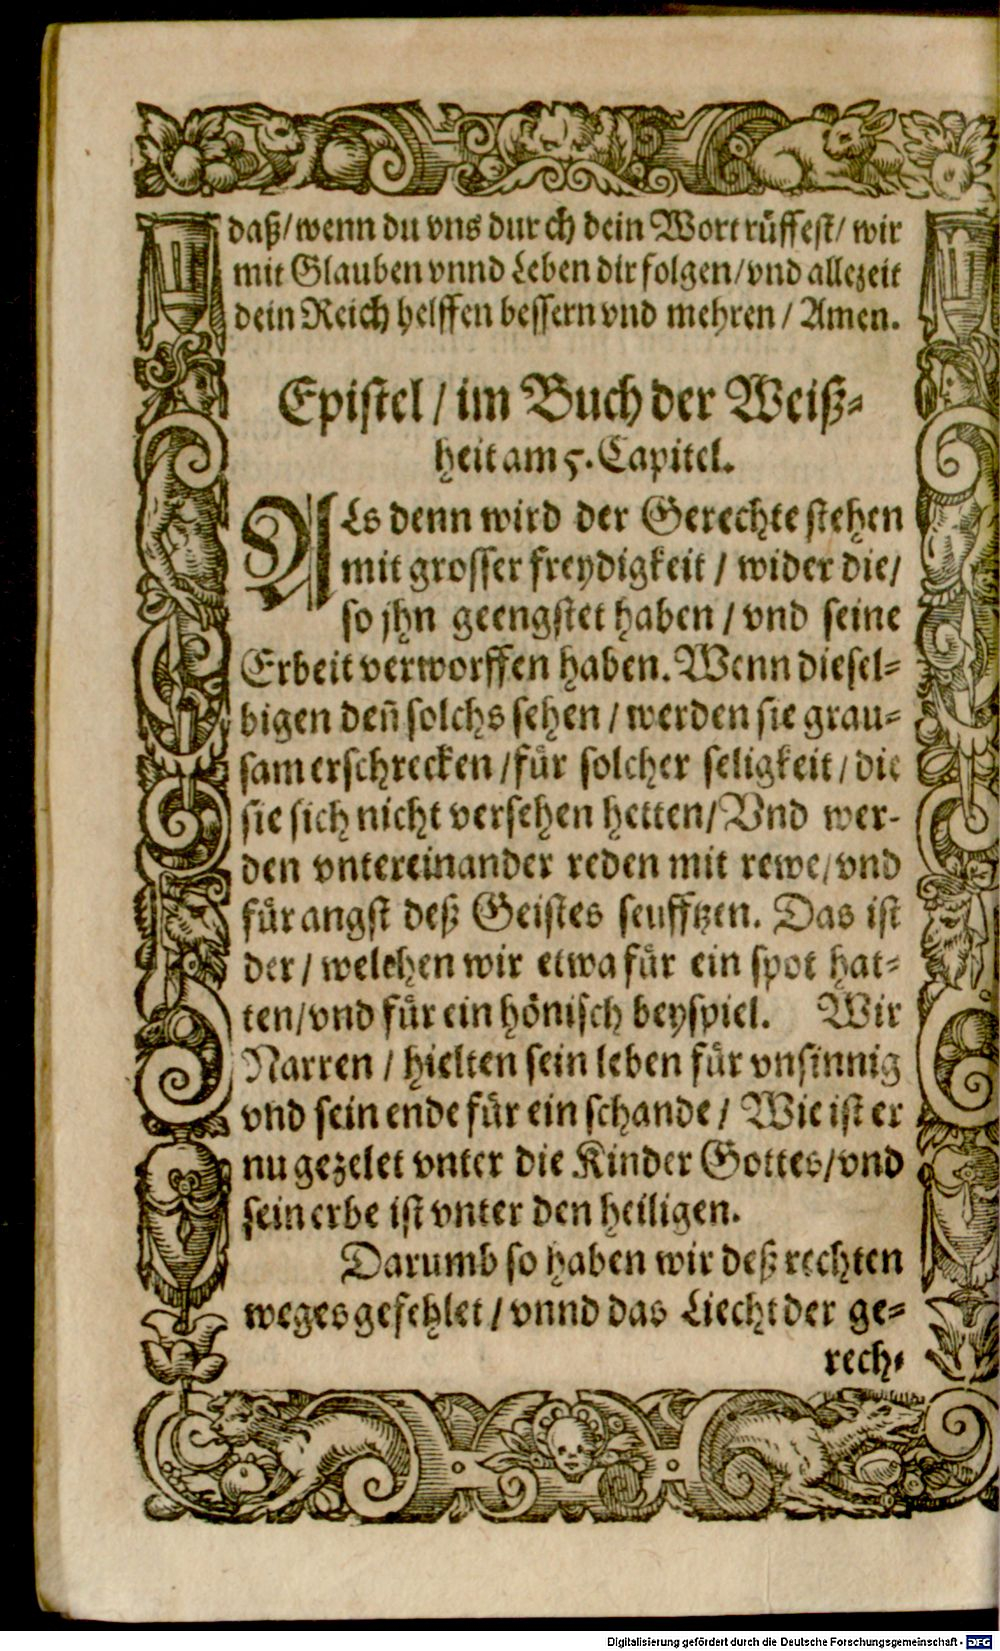 daß/wenn du vns durch dein Wort rüffest/ wir
mit Glauben vnnd Leben dir folgen/vnd allezeit
dein Reich helffen bessern vnd mehren / Amen.
Epistel / im Buch der Weiß-
heit am 5. Capitel.
ALs denn wird der Gerechte stehen
mit grosser freydigkeit / wider die/
so jhn geengstet haben / vnd seine
Erbeit verworffen haben. Wenn diesel-
bigen deñ solchs sehen / werden sie grau-
sam erschrecken /für solcher seligkeit / die
sie sich nicht versehen hetten/ Vnd wer-
den vntereinander reden mit rewe/vnd
für angst deß Geistes seufftzen. Das ist
der / welchen wir etwa für ein spot hat-
ten/vnd für ein hönisch beyspiel. Wir
Narren / hielten sein leben für vnsinnig
vnd sein ende für ein schande / Wie ist er
nu gezelet vnter die Kinder Gottes/vnd
sein erbe ist vnter den heiligen.
Darumb so haben wir deß rechten
weges gefehlet / vnnd das Liecht der ge-
rech-
Digitalisierung gefördert durch die Deutsche Forschungsgemeinschaft - DFG